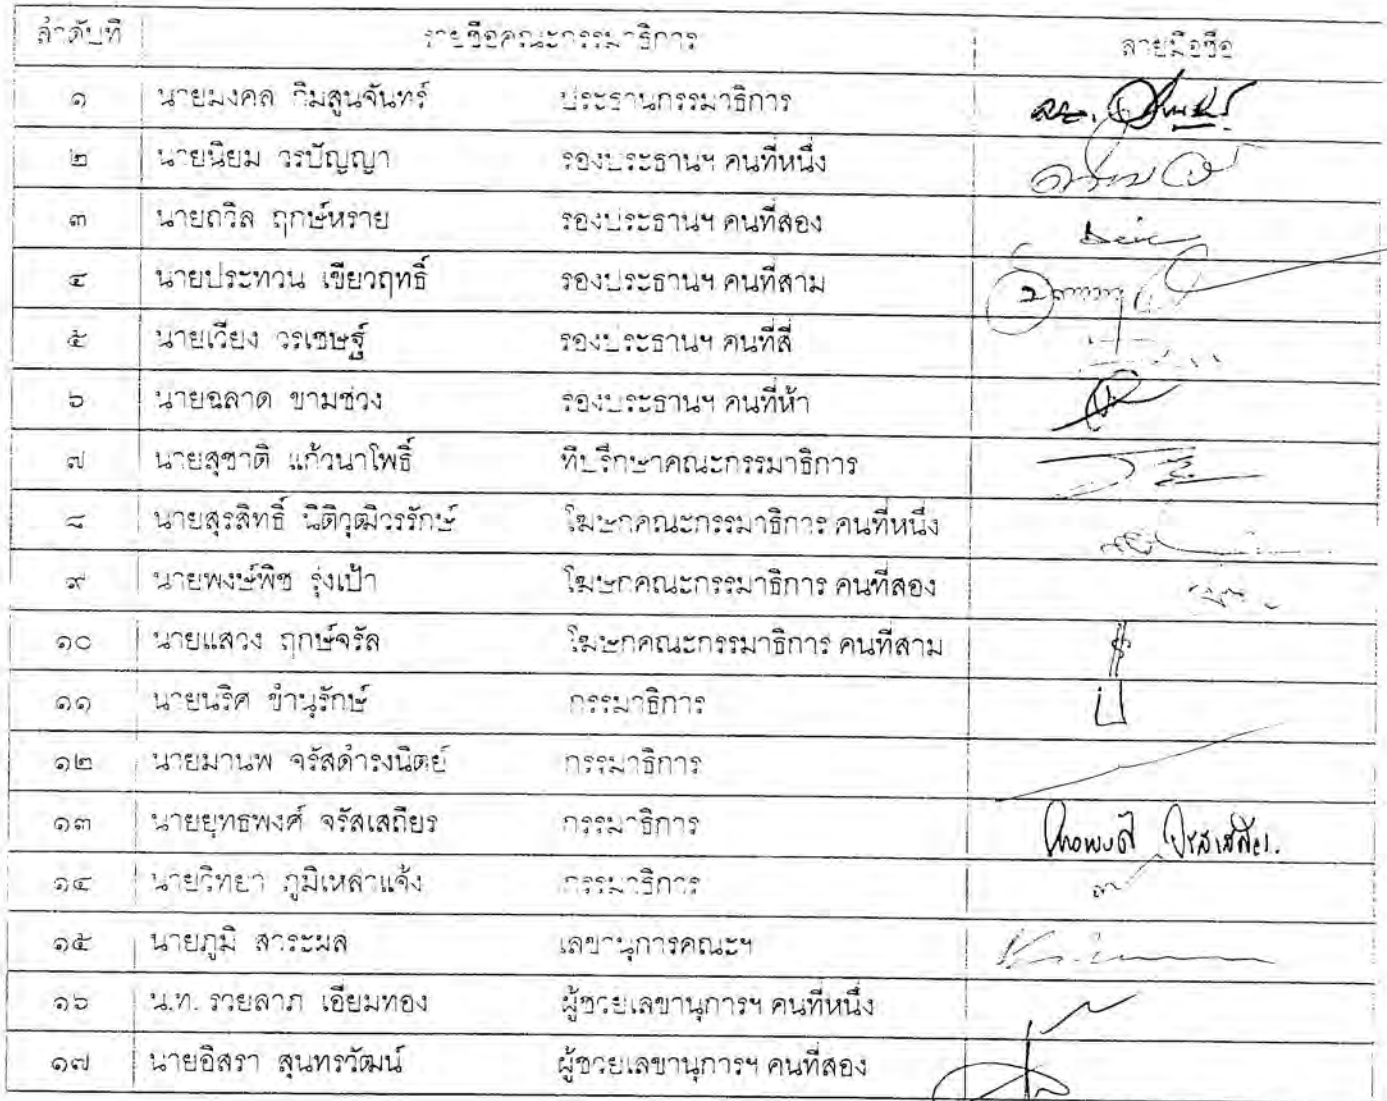 ลำดับที่ รายชื่อคณะกรรมาธิการ ลายมือชื่อ
๑ นายมงคล กิมสูนจันทร์ ประธานกรรมาธิการ
๒ นายนิยม วรปัญญา รองประธานฯ คนที่หนึ่ง
๓ นายถวิล ฤกษ์หร่าย รองประธานฯ คนที่สอง
๔ นายประทวน เขียวฤทธิ์ รองประธานฯ คนที่สาม
๕ นายเวียง วรเชษฐ์ รองประธานฯ คนที่สี่
๖ นายฉลาด ขามช่วง รองประธานฯ คนที่ห้า
๗ นายสุชาติ แก้วนาโพธิ์ ที่ปรึกษาคณะกรรมาธิการ
๘ นายสุรสิทธิ์ นิติวุฒิวรรักษ์ โฆษกคณะกรรมาธิการ คนที่หนึ่ง
๙ นายพงษ์พิช รุ่งเป้า โฆษกคณะกรรมาธิการ คนที่สอง
๑๐ นายแสวง ฤกษ์จรัล โฆษกคณะกรรมาธิการ คนที่สาม
๑๑ นายนริศ ขำนุรักษ์ กรรมาธิการ
๑๒ นายมานพ จรัสดำรงนิตย์ กรรมาธิการ
๑๓ นายยุทธพงศ์ จรัสเสถียร กรรมาธิการ
๑๔ นายวิทยา ภูมิเหล่าแจ้ง กรรมาธิการ
๑๕ นายภูมิ สาระผล เลขานุการคณะฯ
๑๖ น.ท. รวยลาภ เอี่ยมทอง ผู้ช่วยเลขานุการฯ คนที่หนึ่ง
๑๗ นายอิสรา สุนทรวัฒน์ ผู้ช่วยเลขานุการฯ คนที่สอง